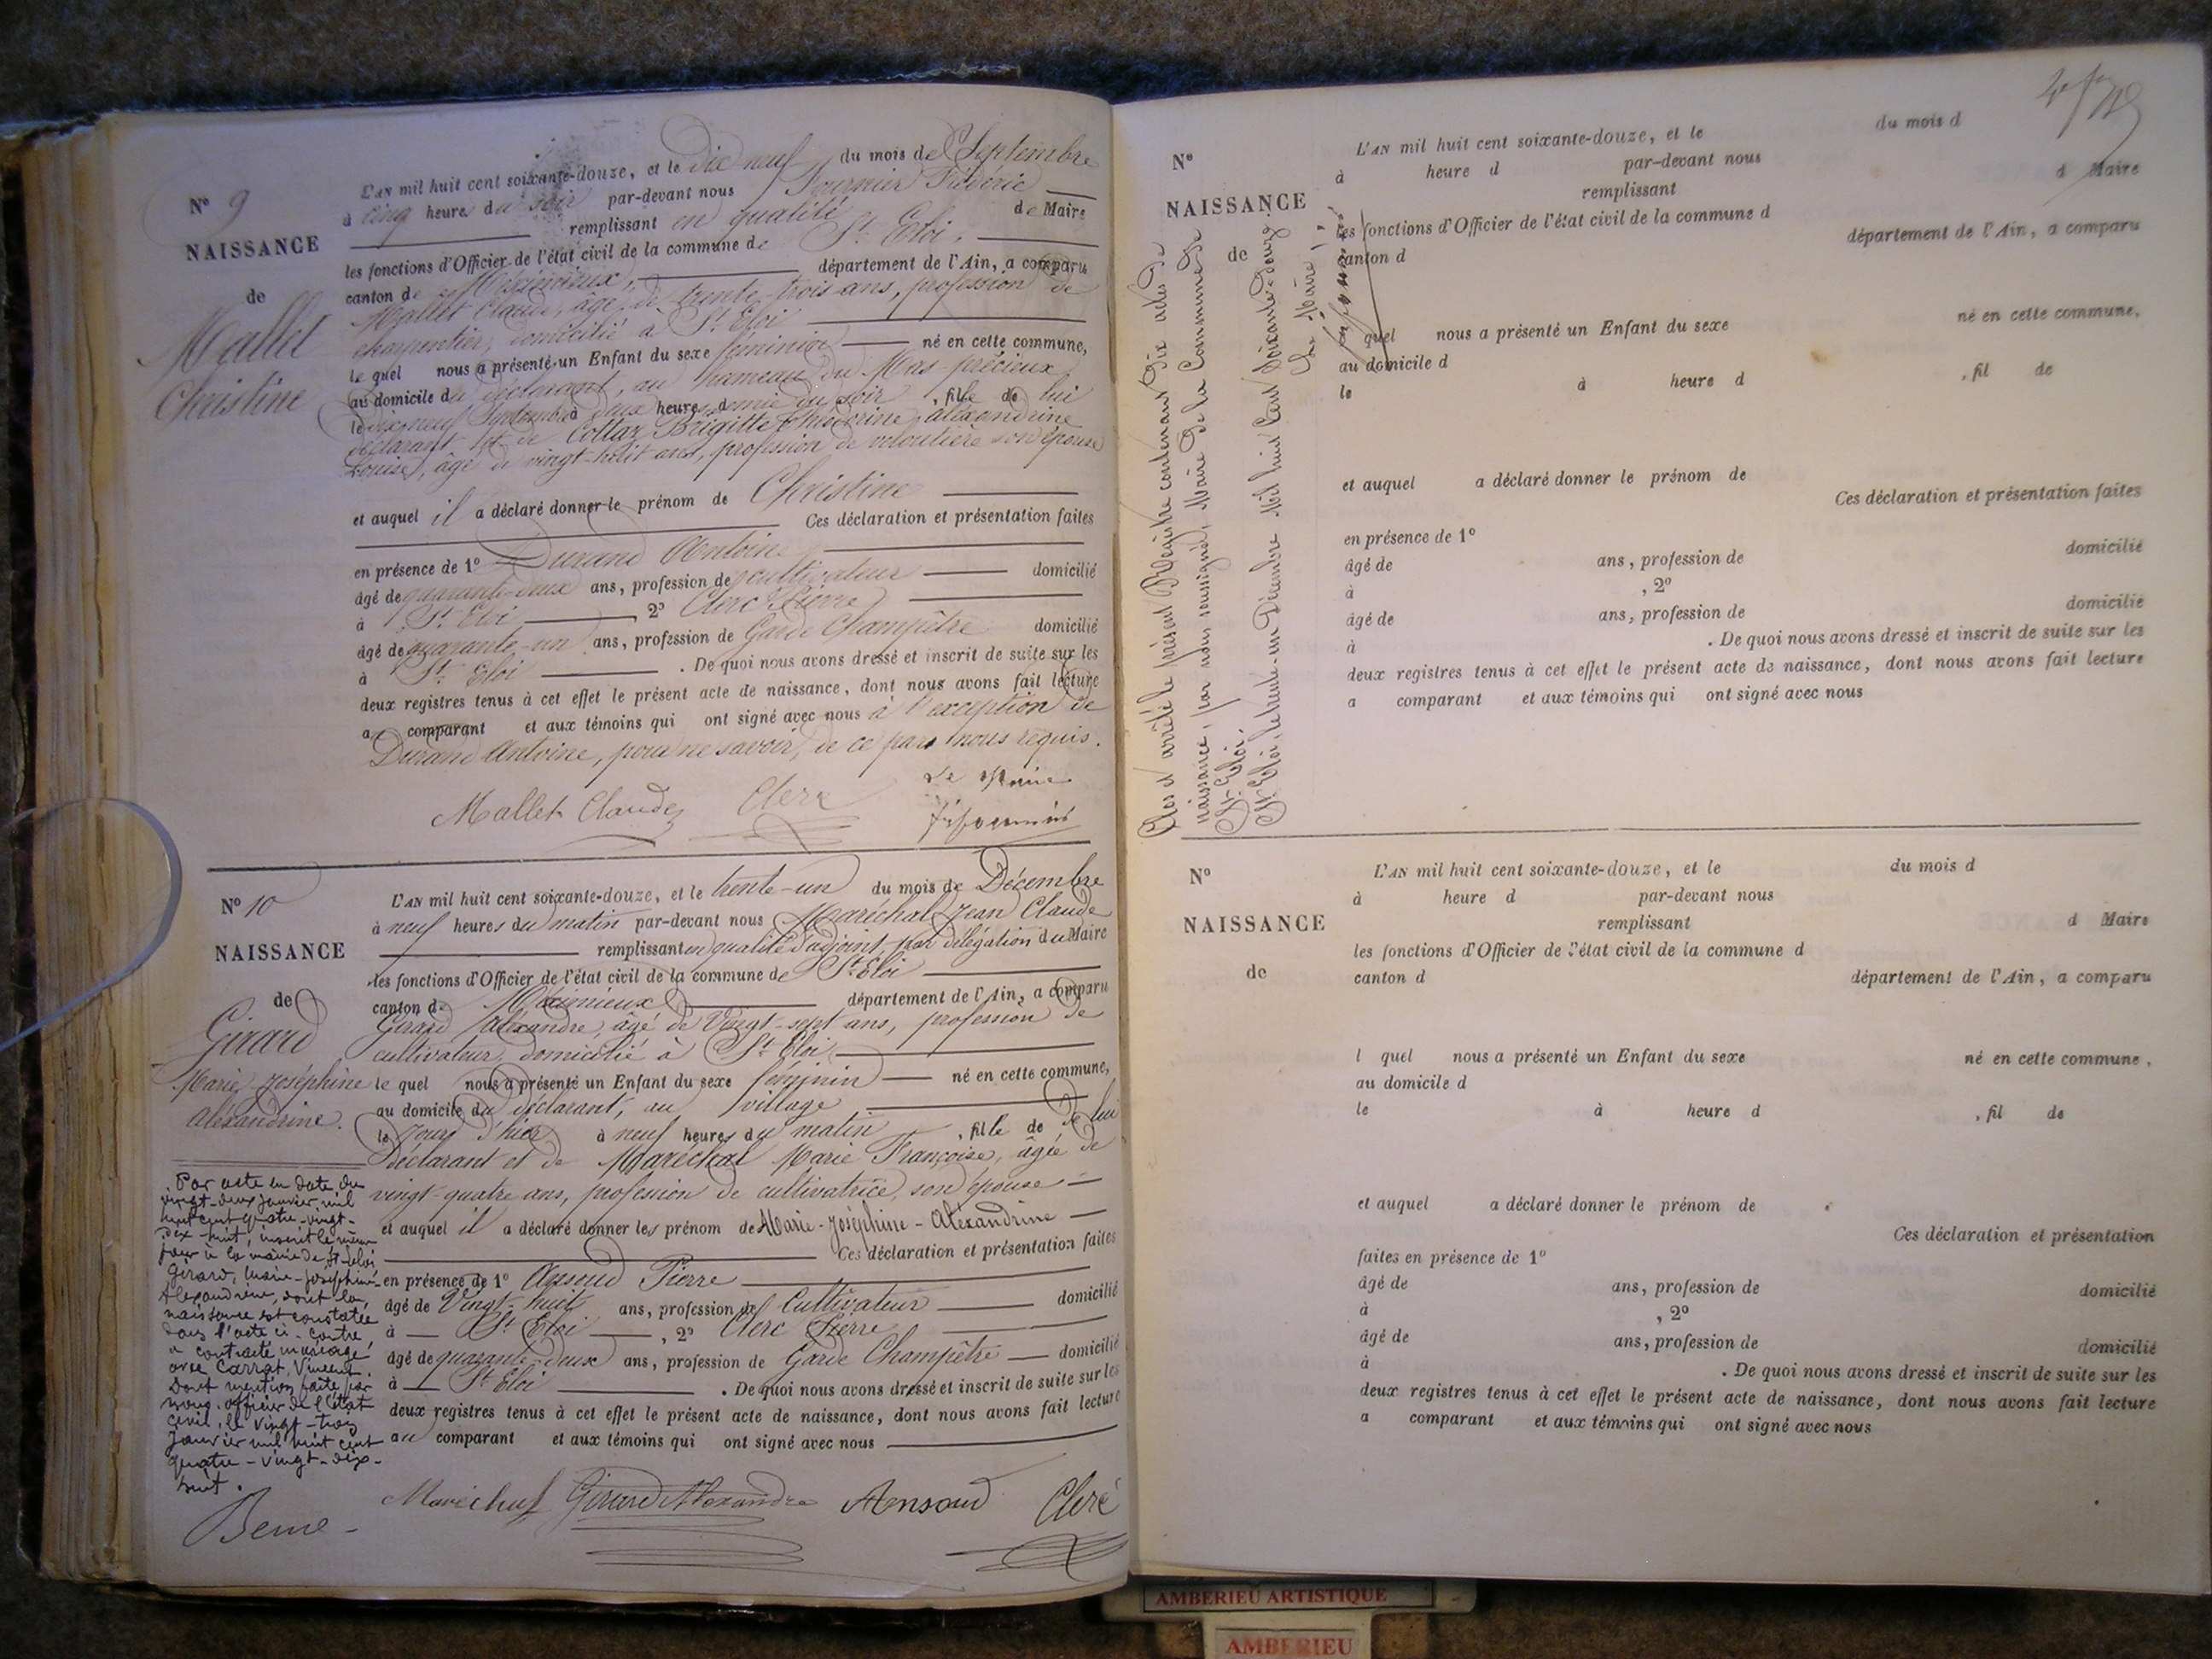 N° 9
NAISSANCE
de
Mallet
Christine
L'AN mil huit cent soixante-douze, et le dix neuf du mois de Septembre
à cinq heures du soir par-devant nous Fournier Frédéric
remplissant en qualité de Maire
les fonctions d'Officier de l'état civil de la commune de St. Eloi,
canton de Meximieux, département de l'Ain, a comparu
Mallet Claude, âgé de trente-trois ans, profession de
charpentier, domicilié à St Eloi
le quel nous a présenté un Enfant du sexe féminin né en cette commune,
au domicile du déclarant, au hameau du Mas-précieux
le dix neuf Septembre à deux heures demie du soir, fille de lui
déclarant et de Cottaz Brigitte alexandrine
Louise, âgé de vingt-huit ans, profession de son épouse
et auquel il a déclaré donner le prénom de Christine
Ces déclaration et présentation faites
en présence de 1° Durand Antoine
âgé de quarante-deux ans, profession de cultivateur domicilié
à St. Eloi, 2° Clerc Pierre
âgé de quarante-un ans, profession de Garde Champêtre domicilié
à St. Eloi. De quoi nous avons dressé et inscrit de suite sur les
deux registres tenus à cet effet le présent acte de naissance, dont nous avons fait lecture
au comparant et aux témoins qui ont signé avec nous à l'exception de
Durand Antoine, pour ne savoir, de ce par nous requis.
Le Maire
Mallet Claude Clerc
N° 10
NAISSANCE
de
Girard
Marie Joséphine
Alexandrine.
L'AN mil huit cent soixante-douze, et le trente-un du mois de Décembre
à neuf heures du matin par-devant nous Maréchal Jean Claude
remplissant en qualité d'adjoint, par délégation du Maire
les fonctions d'Officier de l'état civil de la commune de St Eloi
canton de Meximieux département de l'Ain, a comparu
Girard Alexandre, âgé de Vingt-sept ans, profession de
cultivateur, domicilié à St Eloi
le quel nous a présenté un Enfant du sexe féminin né en cette commune,
au domicile du déclarant, au village
le jour d'hier à neuf heures du matin, fille de de lui
déclarant et de Maréchal Marie Françoise, âgée de
vingt-quatre ans, profession de cultivatrice, son épouse
et auquel il a déclaré donner les prénom de Marie-Joséphine-Aléxandrine
Ces déclaration et présentation faites
en présence de 1° Ansoud Pierre
âgé de Vingt-huit ans, profession de Cultivateur domicilié
à St Eloi, 2° Clerc Pierre
âgé de quarante-deux ans, profession de Garde Champêtre domicilié
à St Eloi. De quoi nous avons dressé et inscrit de suite sur les
deux registres tenus à cet effet le présent acte de naissance, dont nous avons fait lecture
au comparant et aux témoins qui ont signé avec nous
Maréchal Girard Alexandre Ansoud Clerc
Par acte en date du
vingt-deux janvier mil
huit cent quatre-vingt-
dix-huit, inscrit le même
jour à la mairie de St-Eloi
Girard, Marie-Joséphine-
Alexandrine, dont la
naissance est constatée
dans l'acte ci-contre,
a contracté mariage
avec Carrat, Vincent.
Dont mention faite par
nous, officier de l'état
civil, le vingt-trois
janvier mil huit cent
quatre-vingt-dix-
huit.
Clos et arrêté le présent Registre contenant Dix actes de
naissance, par nous, soussigné, Maire de la Commune de
St. Eloi.
St. Eloi, le trente-un Décembre Mil huit Cent Soixante-douze
Le Maire,
N°
NAISSANCE
de
L'AN mil huit cent soixante-douze, et le du mois d
à heure d par-devant nous
remplissant d Maire
les fonctions d'Officier de l'état civil de la commune d
canton d département de l'Ain, a comparu
quel nous a présenté un Enfant du sexe né en cette commune,
au domicile d
le à heure d , fil de
et auquel a déclaré donner le prénom de
Ces déclaration et présentation faites
en présence de 1°
âgé de ans, profession de domicilié
à , 2°
âgé de ans, profession de domicilié
à . De quoi nous avons dressé et inscrit de suite sur les
deux registres tenus à cet effet le présent acte de naissance, dont nous avons fait lecture
a comparant et aux témoins qui ont signé avec nous
N°
NAISSANCE
de
L'AN mil huit cent soixante-douze, et le du mois d
à heure d par-devant nous
remplissant d Maire
les fonctions d'Officier de l'état civil de la commune d
canton d département de l'Ain, a comparu
l quel nous a présenté un Enfant du sexe né en cette commune,
au domicile d
le à heure d , fil de
et auquel a déclaré donner le prénom de
Ces déclaration et présentation
faites en présence de 1°
âgé de ans, profession de domicilié
à , 2°
âgé de ans, profession de domicilié
à . De quoi nous avons dressé et inscrit de suite sur les
deux registres tenus à cet effet le présent acte de naissance, dont nous avons fait lecture
a comparant et aux témoins qui ont signé avec nous
AMBERIEU ARTISTIQUE
AMBERIEU